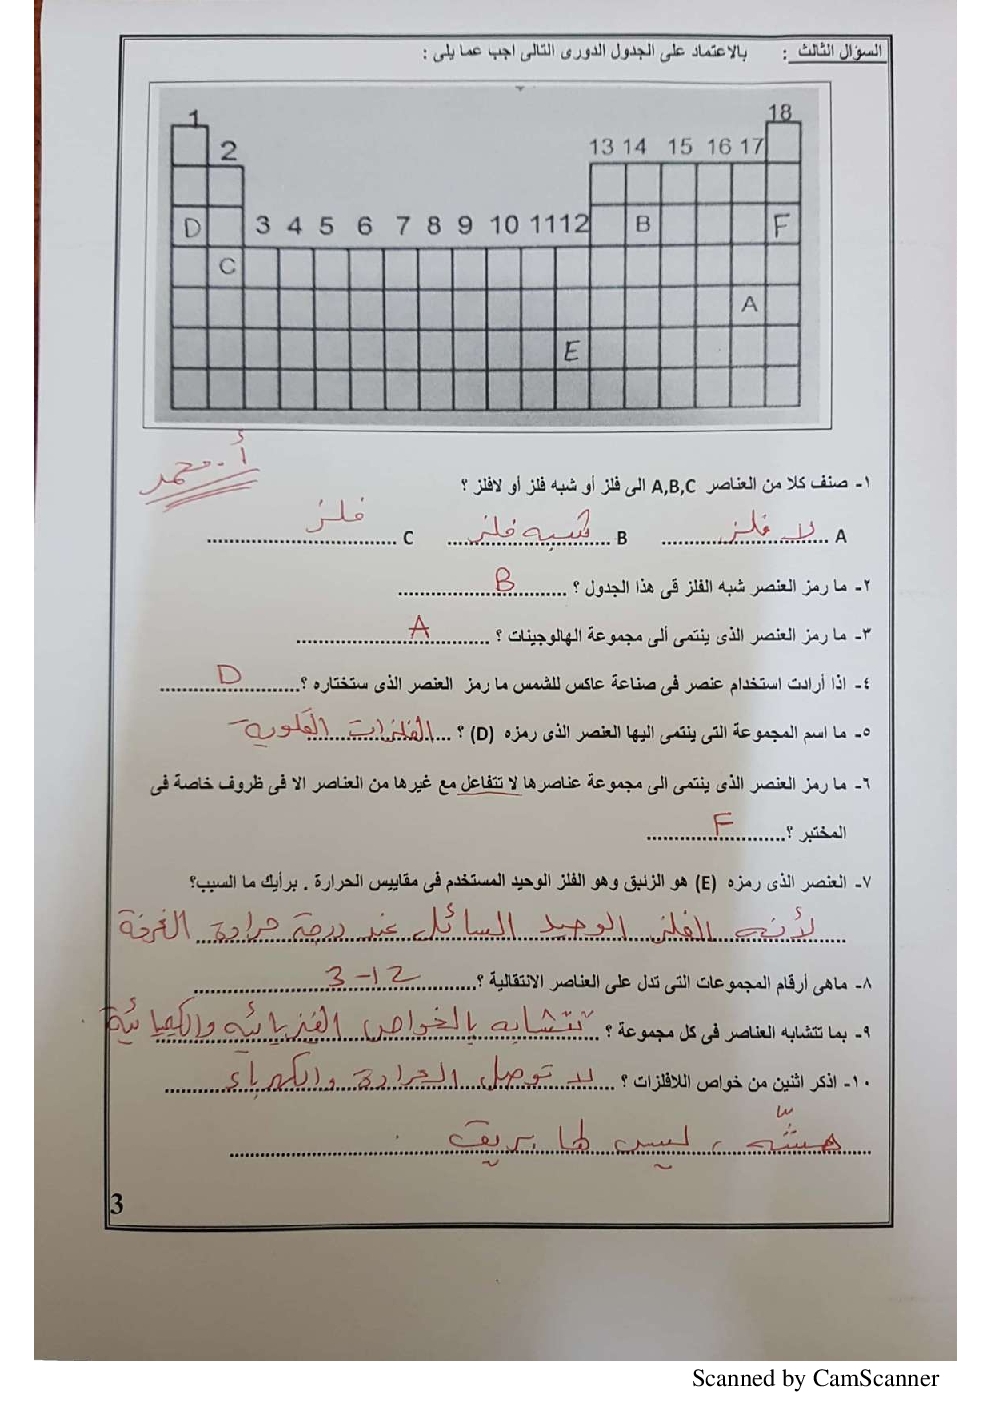 السؤال الثالث : بالاعتماد على الجدول الدورى التالى اجب عما يلى :
1 18
2 13 14 15 16 17
D 3 4 5 6 7 8 9 10 11 12 B F
C
A
E
أ. محمد
١- صنف كلا من العناصر A,B,C الى فلز أو شبه فلز أو لافلز ؟
A لا فلز B شبه فلز C فلز
٢- ما رمز العنصر شبه الفلز فى هذا الجدول ؟ B
٣- ما رمز العنصر الذى ينتمى ألى مجموعة الهالوجينات ؟ A
٤- اذا أرادت استخدام عنصر فى صناعة عاكس للشمس ما رمز العنصر الذى ستختاره ؟ D
٥- ما اسم المجموعة التى ينتمى اليها العنصر الذى رمزه (D) ؟ الفلزات القلوية
٦- ما رمز العنصر الذى ينتمى الى مجموعة عناصرها لا تتفاعل مع غيرها من العناصر الا فى ظروف خاصة فى
المختبر ؟ F
٧- العنصر الذى رمزه (E) هو الزئبق وهو الفلز الوحيد المستخدم فى مقاييس الحرارة . برأيك ما السبب؟
لأنه الفلز الوحيد السائل عند درجة حرارة الغرفة
٨- ماهى أرقام المجموعات التى تدل على العناصر الانتقالية ؟ 3-12
٩- بما تتشابه العناصر فى كل مجموعة ؟ تتشابه بالخواص الفيزيائيه والكيميائية
١٠- اذكر اثنين من خواص اللافلزات ؟ لا توصل الحرارة والكهرباء
هشّه ، ليس لها بريق
3
Scanned by CamScanner